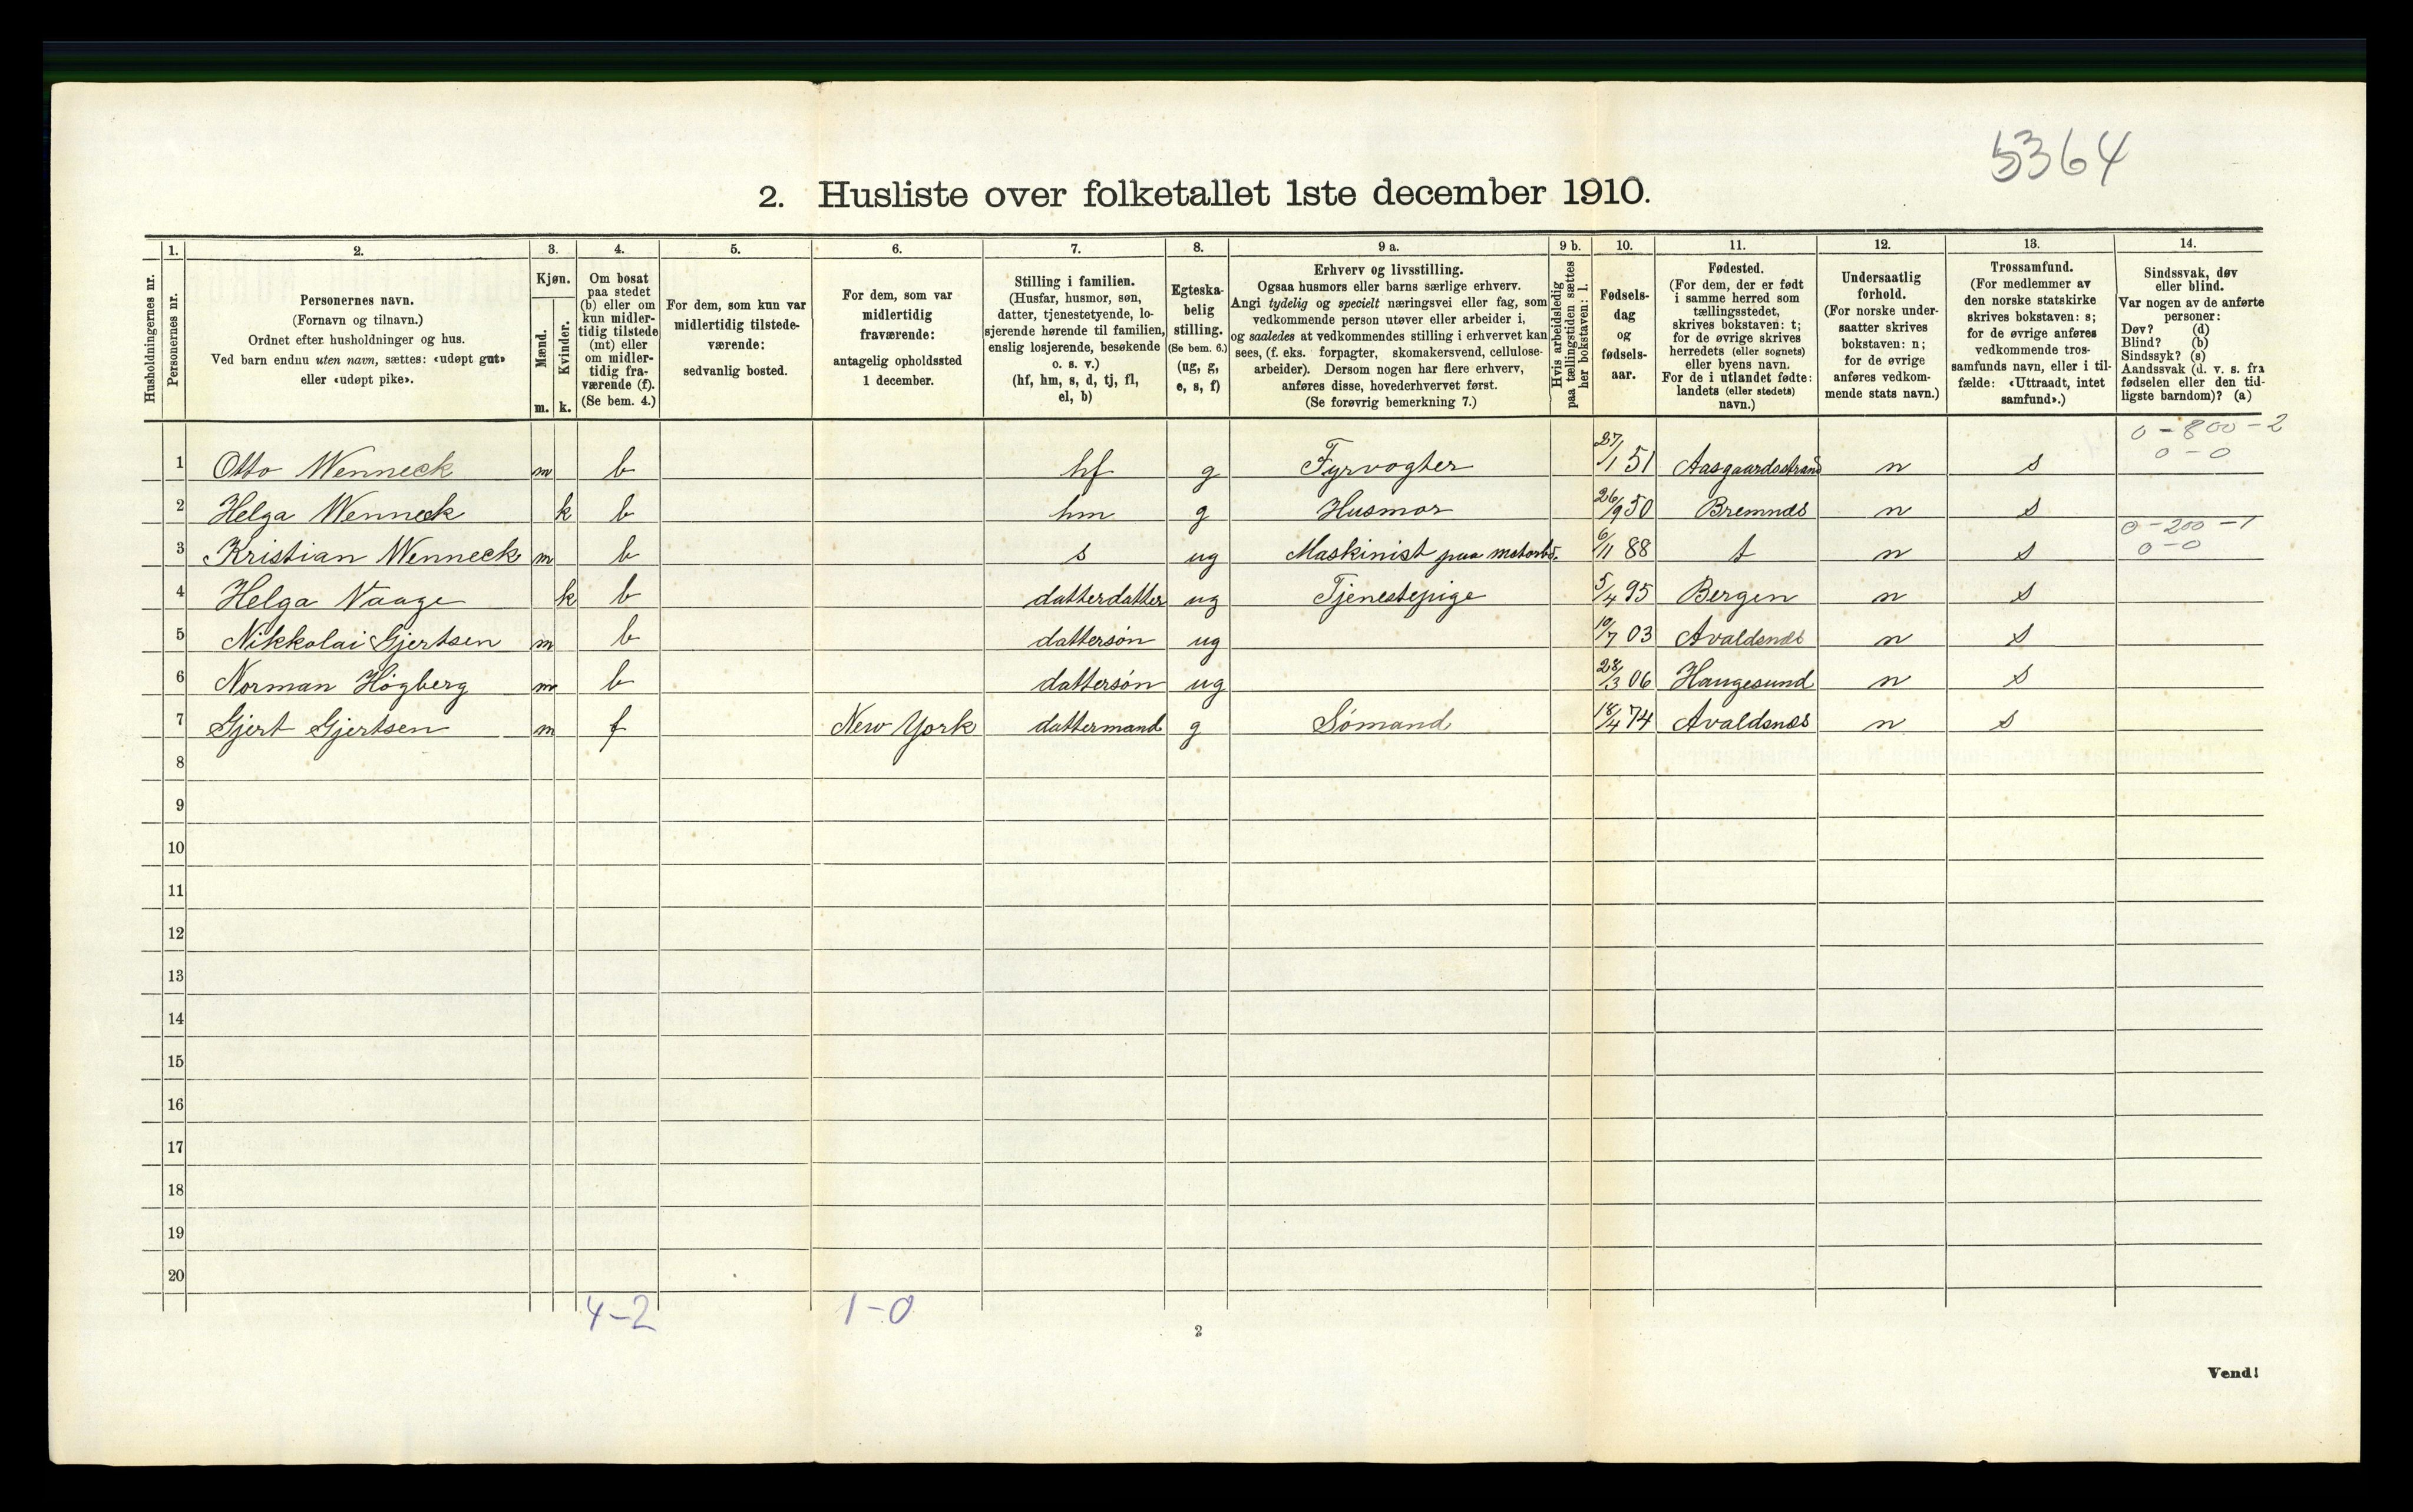 5364
2. Husliste over folketallet 1ste december 1910.
1. 2. 3. 4. 5. 6. 7. 8. 9 a. 9 b. 10. 11. 12. 13. 14.
Husholdningernes nr.
Personernes nr.
Personernes navn.
(Fornavn og tilnavn.)
Ordnet efter husholdninger og hus.
Ved barn endnu uten navn, sættes: «udøpt gut»
eller «udøpt pike».
Kjøn.
Mænd.
Kvinder.
m. k.
Om bosat
paa stedet
(b) eller om
kun midler-
tidig tilstede
(mt) eller
om midler-
tidig fra-
værende (f).
(Se bem. 4.)
For dem, som kun var
midlertidig tilstede-
værende:
sedvanlig bosted.
For dem, som var
midlertidig
fraværende:
antagelig opholdssted
1 december.
Stilling i familien.
(Husfar, husmor, søn,
datter, tjenestetyende, lo-
sjerende hørende til familien,
enslig losjerende, besøkende
o. s. v.)
(hf, hm, s, d, tj, fl,
el, b)
Egteska-
belig
stilling.
(Se bem. 6.)
(ug, g,
e, s, f)
Erhverv og livsstilling.
Ogsaa husmors eller barns særlige erhverv.
Angi tydelig og specielt næringsvei eller fag, som
vedkommende person utøver eller arbeider i,
og saaledes at vedkommendes stilling i erhvervet kan
sees, (f. eks. forpagter, skomakersvend, cellulose-
arbeider). Dersom nogen har flere erhverv,
anføres disse, hovederhvervet først.
(Se forøvrig bemerkning 7.)
Hvis arbeidsledig
paa tællingstiden sættes
her bokstaven: l.
Fødsels-
dag
og
fødsels-
aar.
Fødested.
(For dem, der er født
i samme herred som
tællingsstedet,
skrives bokstaven: t;
for de øvrige skrives
herredets (eller sognets)
eller byens navn.
For de i utlandet fødte:
landets (eller stedets)
navn.)
Undersaatlig
forhold.
(For norske under-
saatter skrives
bokstaven: n;
for de øvrige
anføres vedkom-
mende stats navn.)
Trossamfund.
(For medlemmer av
den norske statskirke
skrives bokstaven: s;
for de øvrige anføres
vedkommende tros-
samfunds navn, eller i til-
fælde: «Uttraadt, intet
samfund».)
Sindssvak, døv
eller blind.
Var nogen av de anførte
personer:
Døv? (d)
Blind? (b)
Sindssyk? (s)
Aandssvak (d. v. s. fra
fødselen eller den tid-
ligste barndom)? (a)
0 - 800 - 2
0 - 0
1 Otto Wenneck m b hf g Fyrvogter 27/1 51 Aasgaardsstrand n s
2 Helga Wenneck k b hm g Husmor 26/9 50 Bremnes n s
0 - 200 - 1
0 - 0
3 Kristian Wenneck m b s ug Maskinist paa motorbå. 6/11 88 t n s
4 Helga Vaage k b datterdatter ug Tjenestepige 5/4 95 Bergen n s
5 Nikkolai Gjertsen m b dattersøn ug 10/7 03 Avaldsnes n s
6 Norman Högberg m b dattersøn ug 28/3 06 Haugesund n s
7 Gjert Gjertsen m f New York dattermand g Sömand 18/4 74 Avaldsnes n s
8
9
10
11
12
13
14
15
16
17
18
19
20
4-2 1-0
2
Vend!